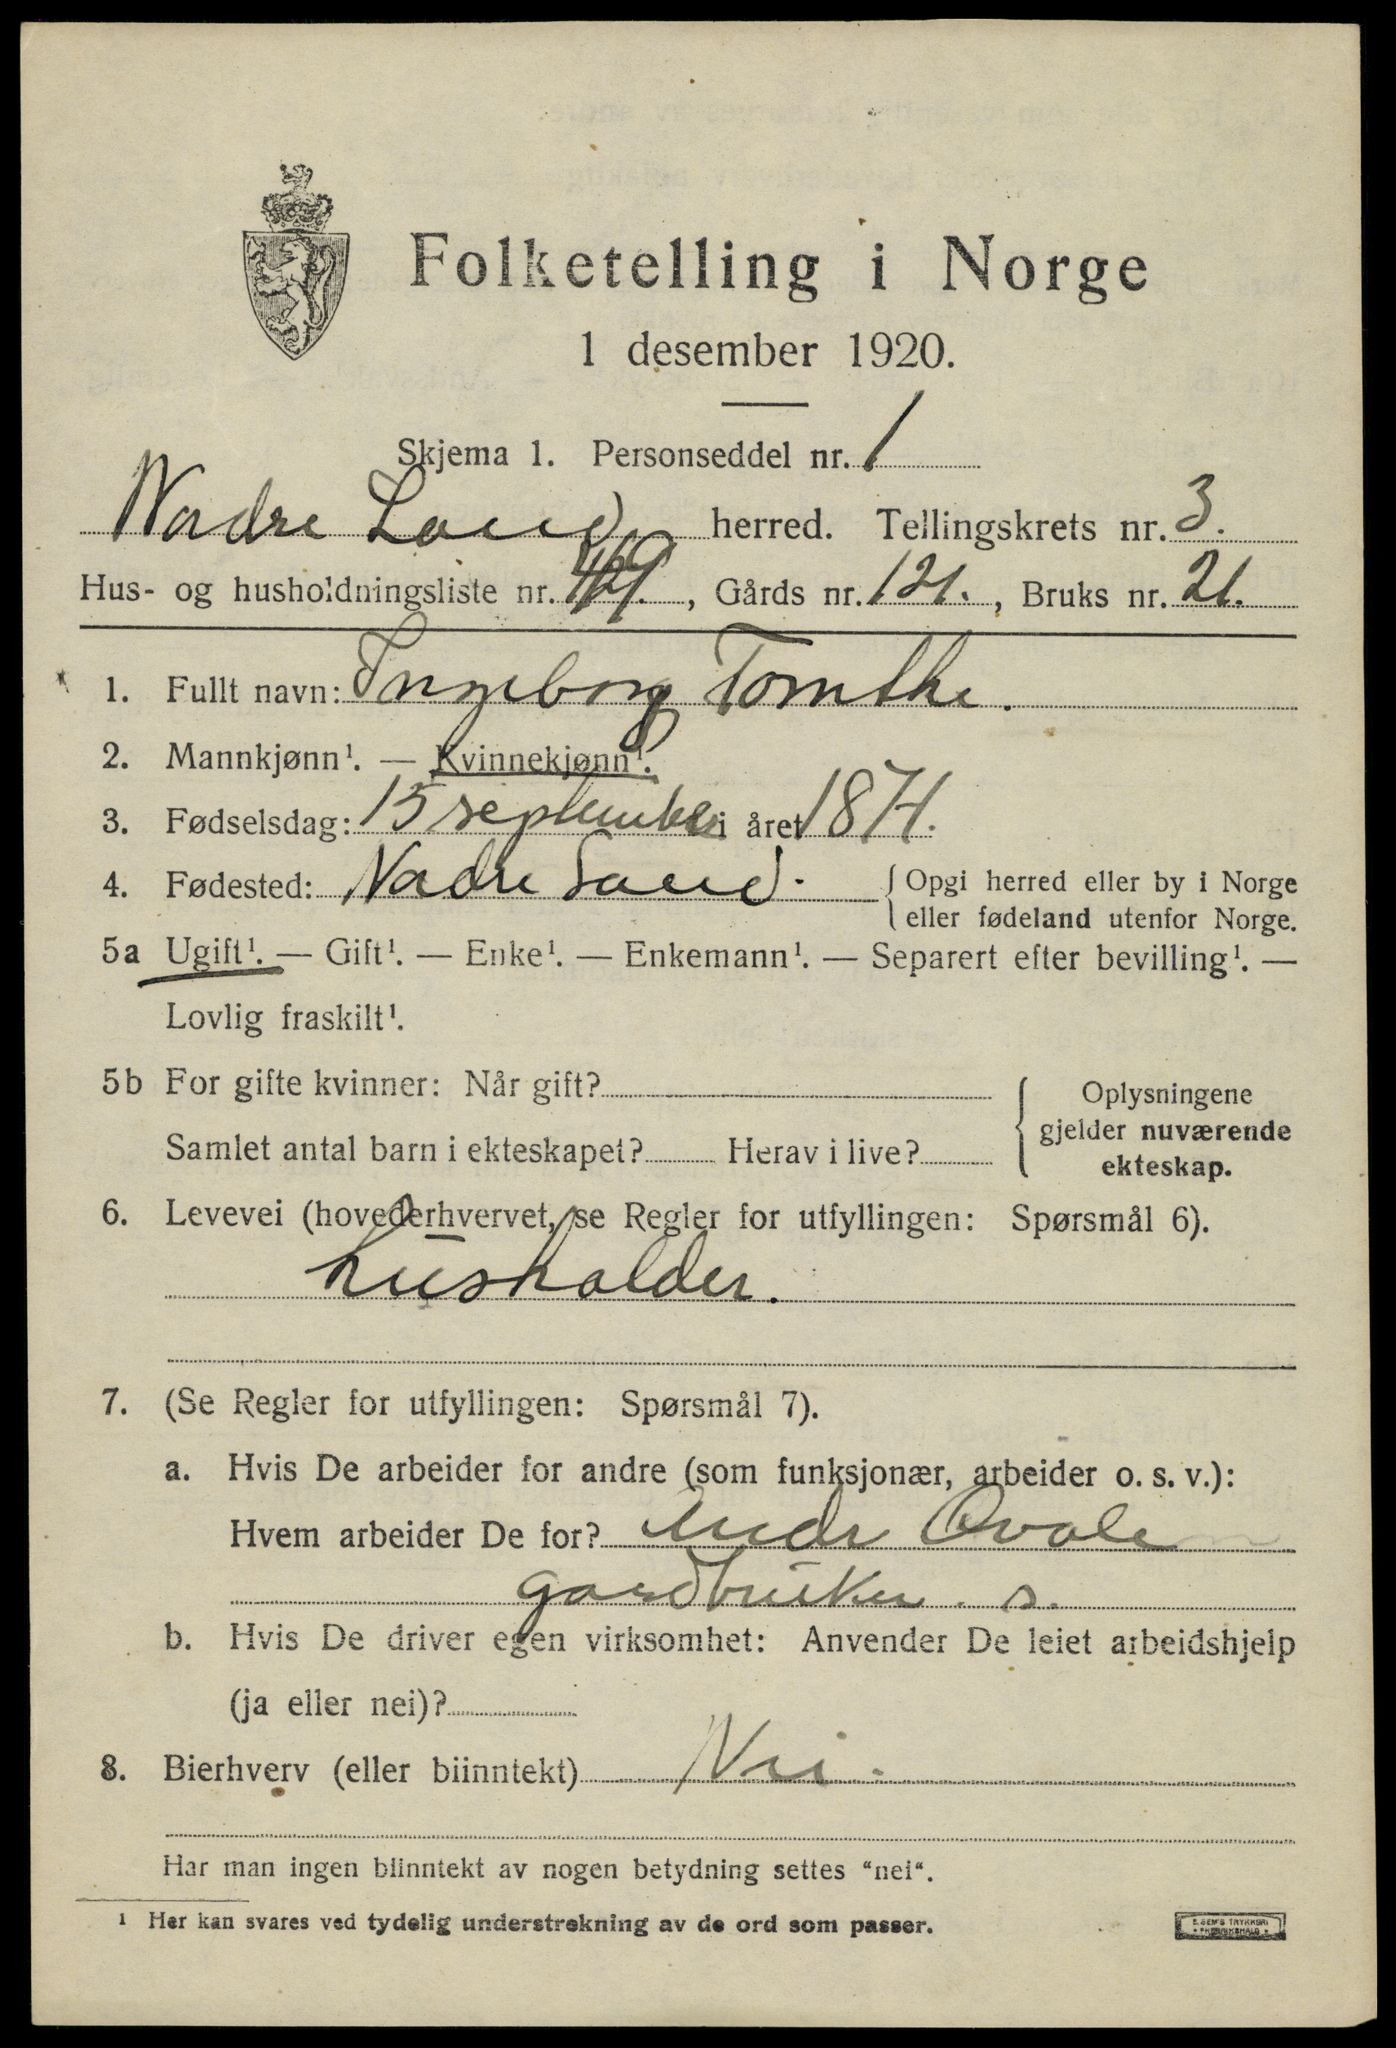 Folketelling i Norge
1 desember 1920.
Skjema 1. Personseddel nr. 1
Nordre Land herred. Tellingskrets nr. 3.
Hus- og husholdningsliste nr. , Gårds nr. 121. , Bruks nr. 21.
1. Fullt navn: Ingeborg Tomthe.
2. Mannkjønn¹. — Kvinnekjønn¹.
3. Fødselsdag: 15 september i året 1871.
4. Fødested: Nordre Land. { Opgi herred eller by i Norge
eller fødeland utenfor Norge.
5a Ugift¹. — Gift¹. — Enke¹. — Enkemann¹. — Separert efter bevilling¹. —
Lovlig fraskilt¹.
5b For gifte kvinner: Når gift? { Oplysningene
gjelder nuværende
ekteskap.
Samlet antal barn i ekteskapet? Herav i live?
6. Levevei (hovederhvervet, se Regler for utfyllingen: Spørsmål 6).
husholder.
7. (Se Regler for utfyllingen: Spørsmål 7).
a. Hvis De arbeider for andre (som funksjonær, arbeider o. s. v.):
Hvem arbeider De for? Andr
gardbruker. s.
b. Hvis De driver egen virksomhet: Anvender De leiet arbeidshjelp
(ja eller nei)?
8. Bierhverv (eller biinntekt) Nei.
Har man ingen biinntekt av nogen betydning settes "nei".
¹ Her kan svares ved tydelig understrekning av de ord som passer.
E. SEM'S TRYKKERI
• FREDRIKSHALD •